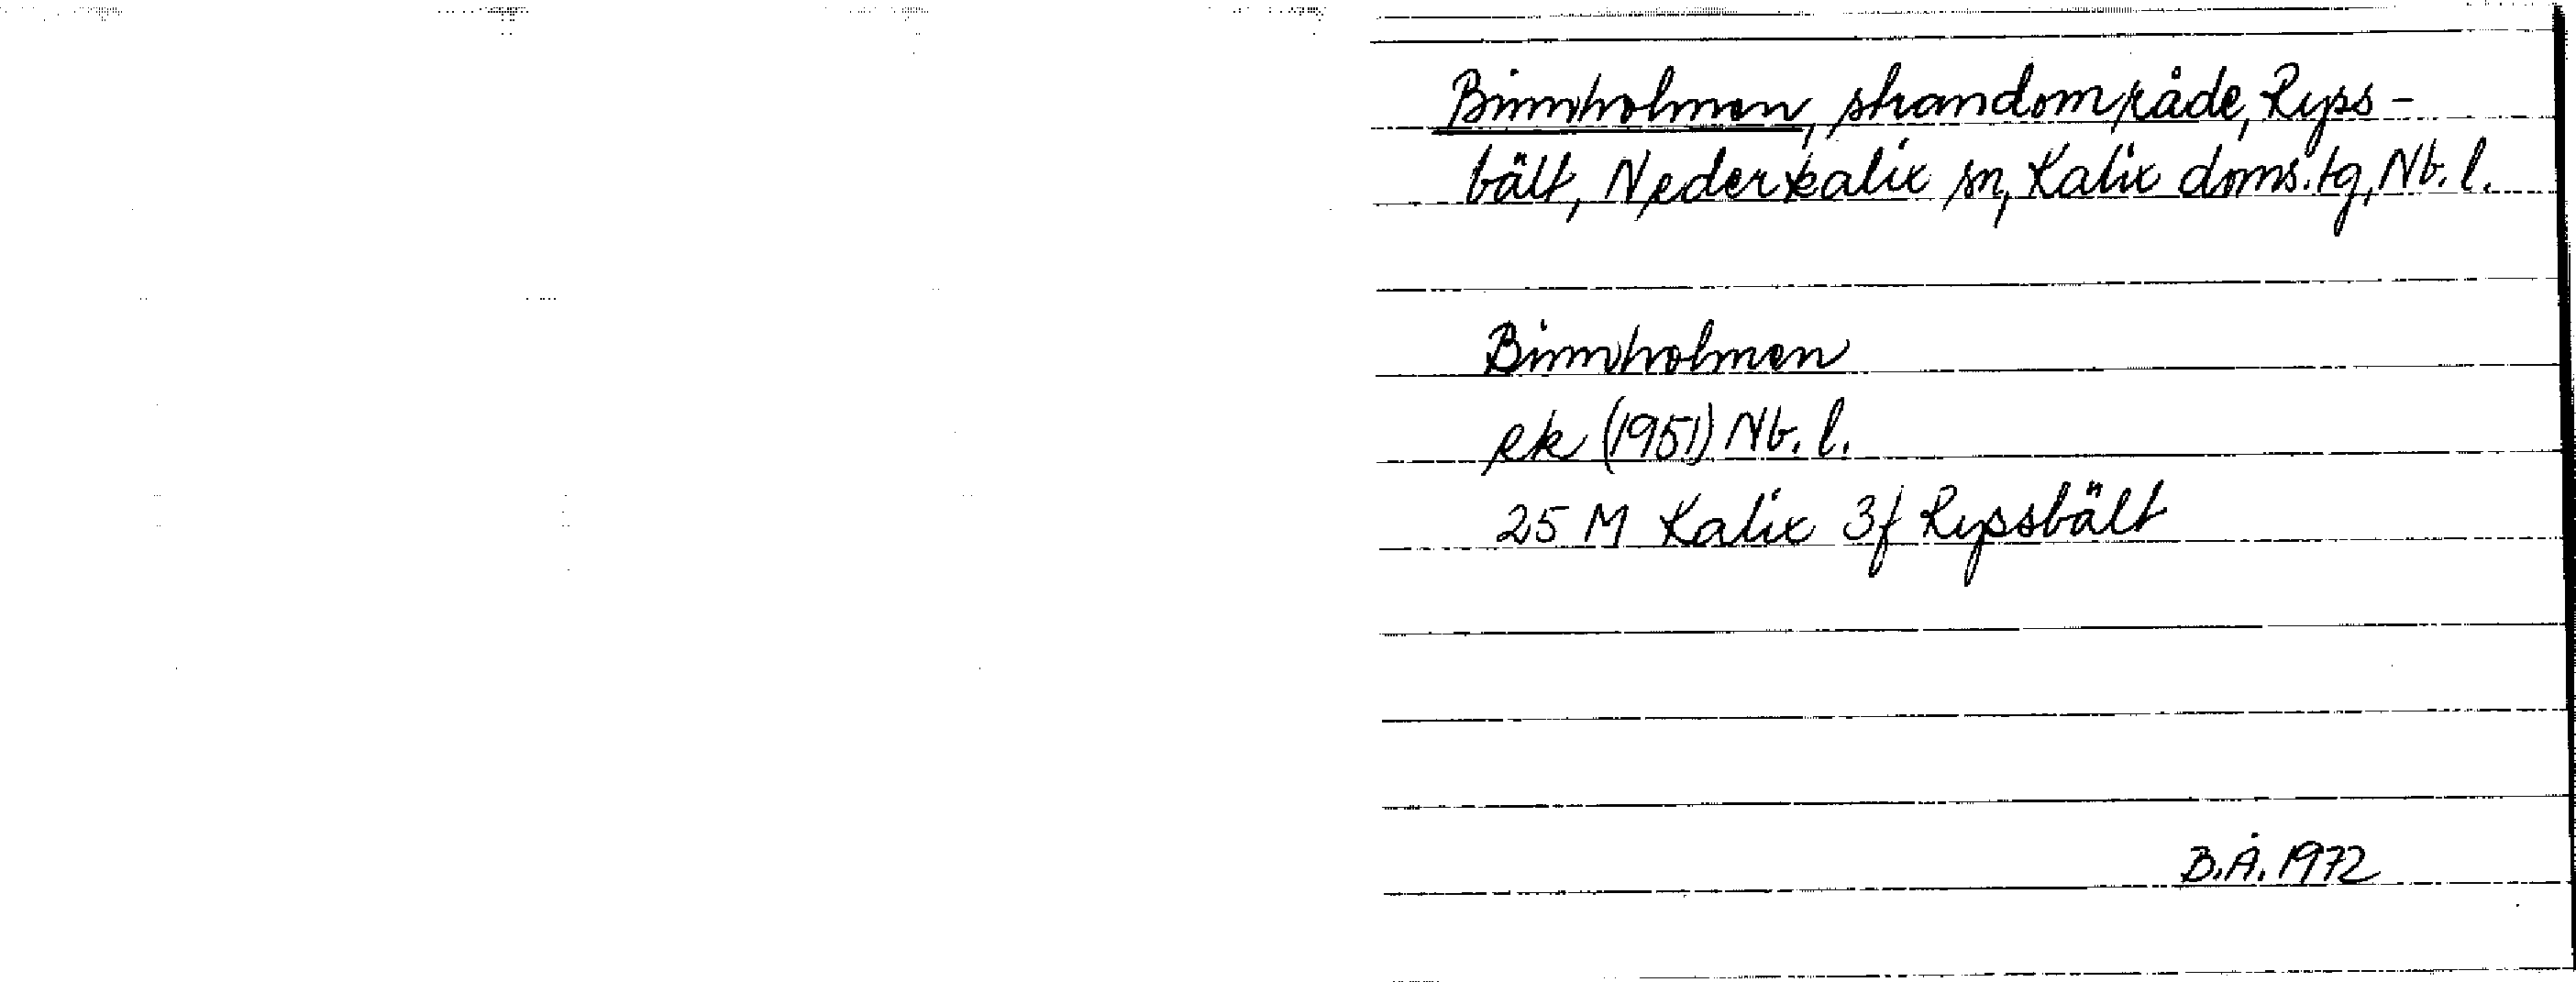 Binnholmen, strandområde, Ryss-
bält, Nederkalix sn, Kalix doms.tg, Nb. l.
Binnholmen
ek (1951) Nb. l.
25 M Kalix 3f Ryssbält
B.Å. 1972